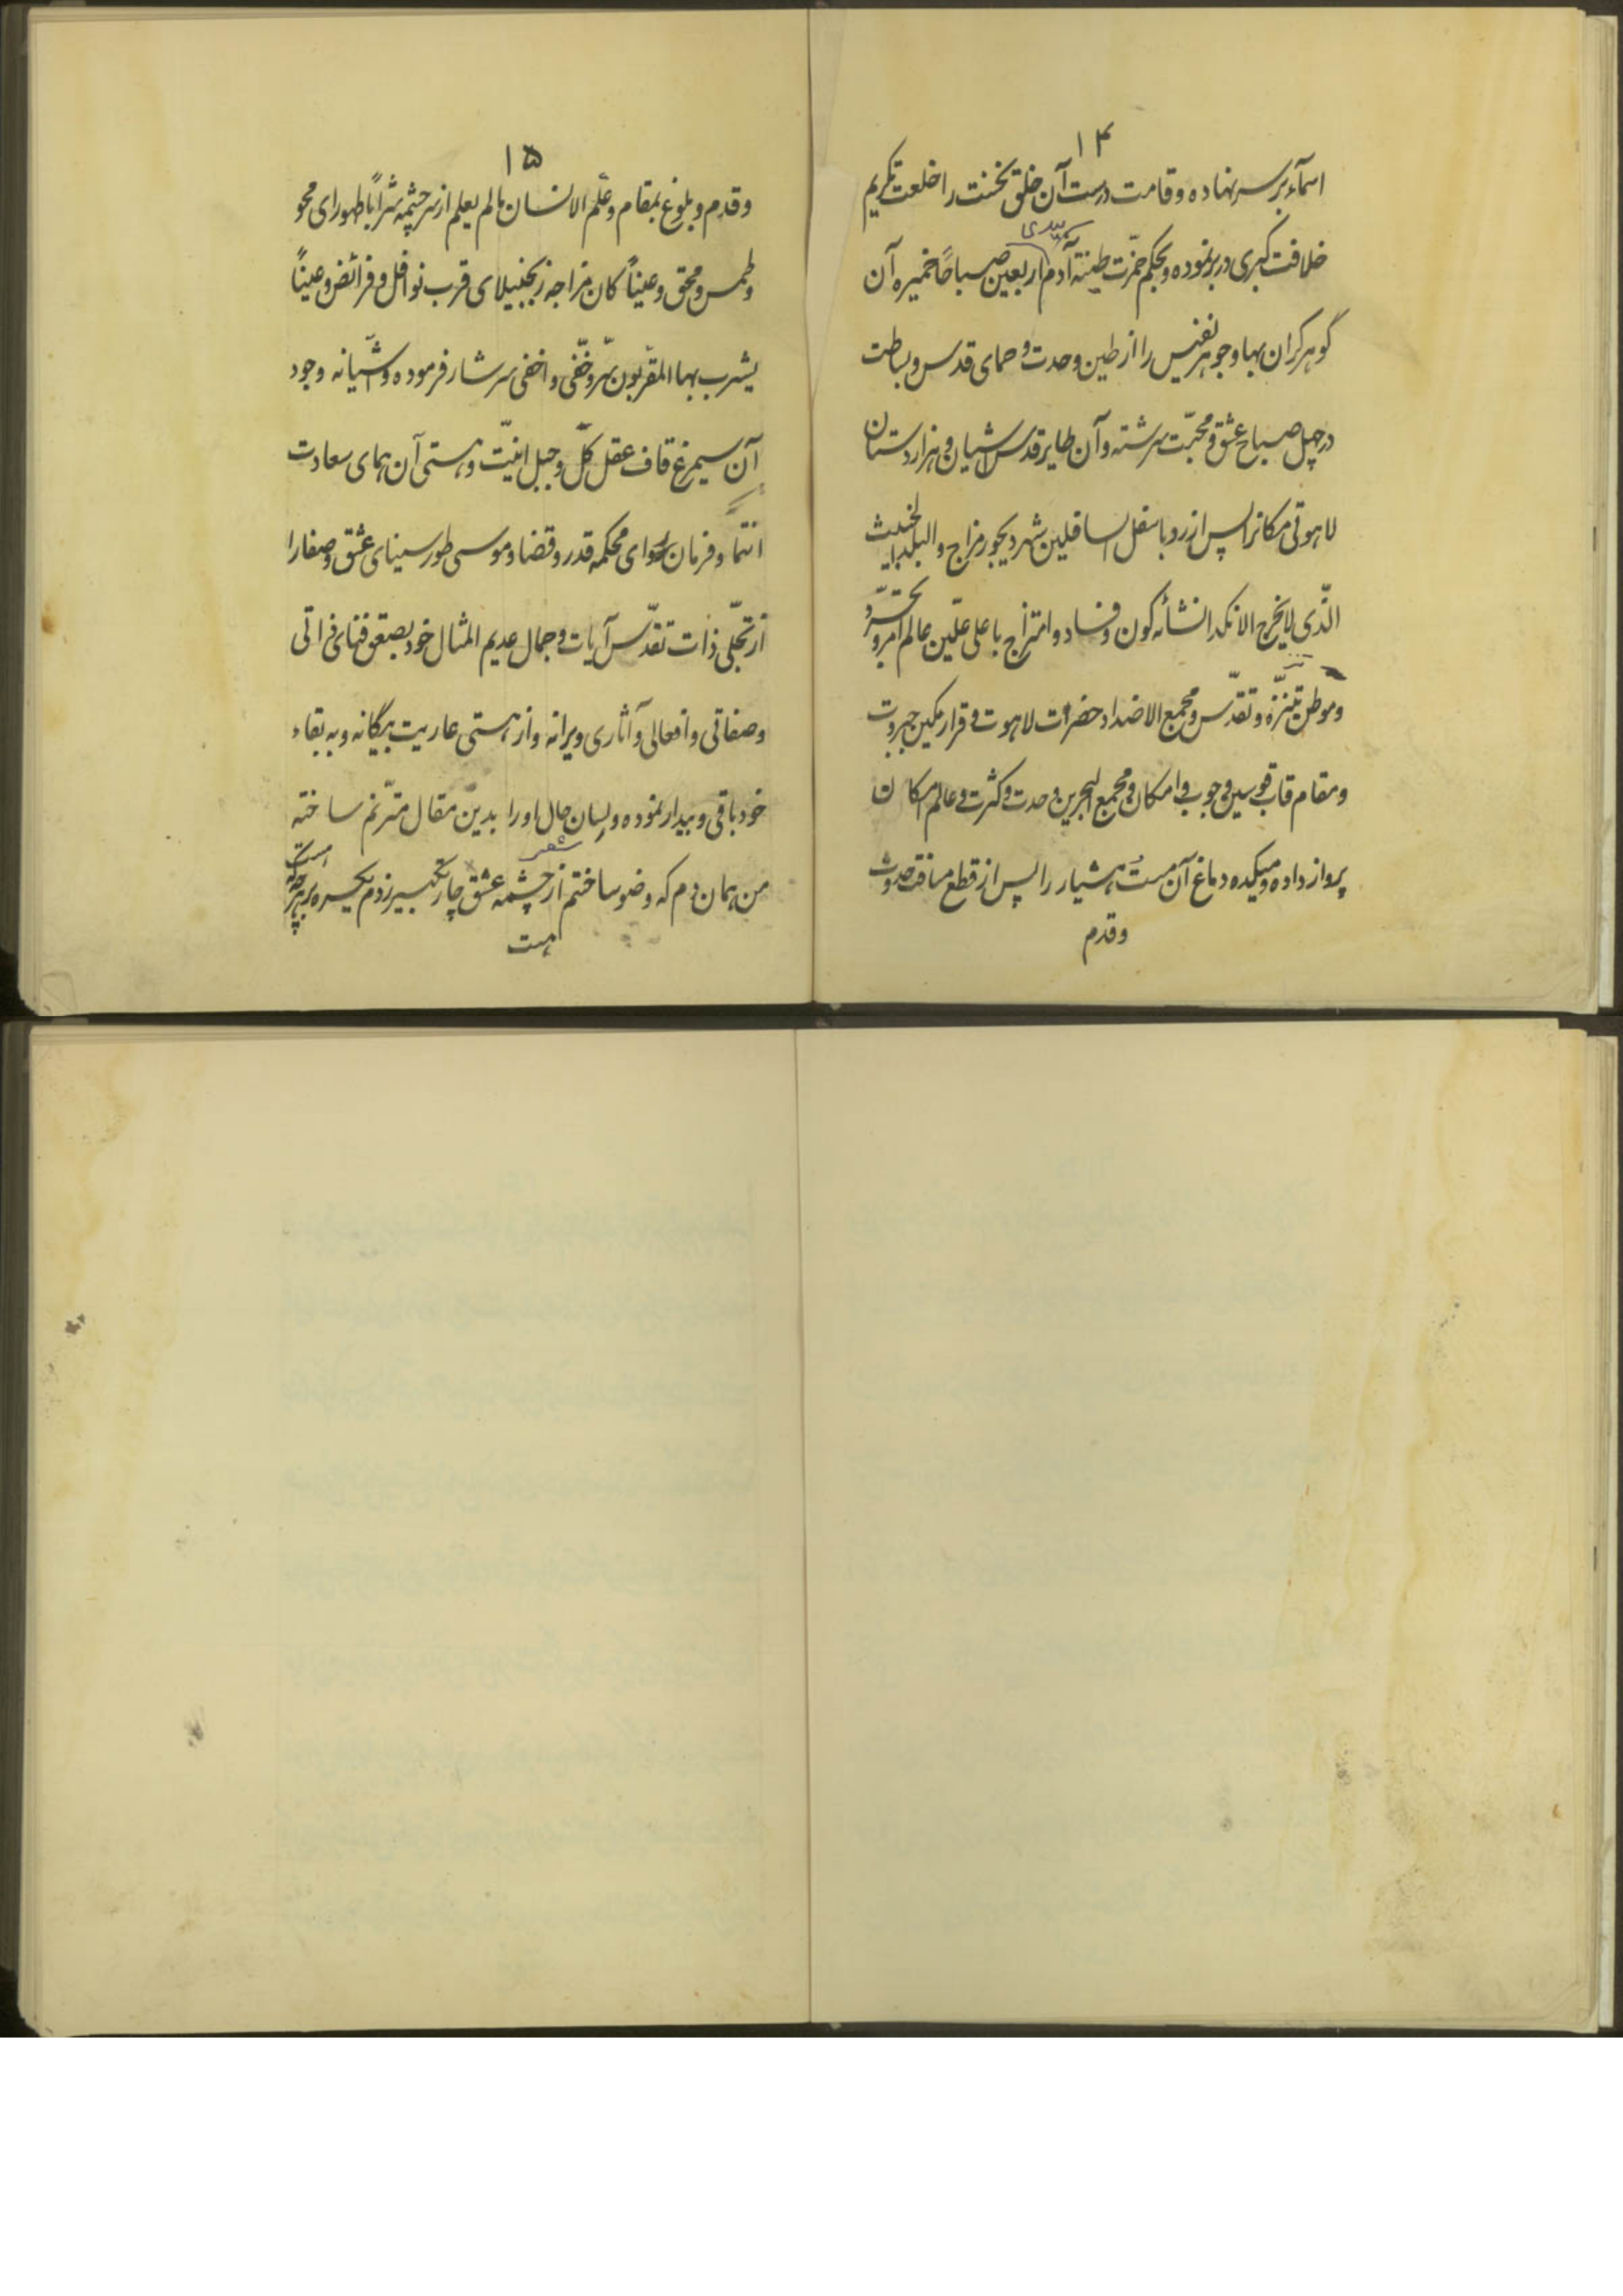 ۱۴
اسماء بر سر نهاده و قامت درست آن خلق نخست را خلعت تکریم
بیدی
خلافت کبری در بر نموده و بحکم خمّرت طینة آدم اربعین صباحاً خمیره آن
گوهر گران بها و جوهر نفیس را از طین وحدت و حمای قدس و بساطت
در چهل صباح عشق و محبّت سرشته و آن طایر قدس آشیان و هزاردستان
لاهوتی مکانرا پس از رد باسفل السافلین شهر دیجور مزاج و البلد الخبیث
الّذی لا یخرج الا نکدا نشأه کون و فساد و امتزاج باعلی علّیین عالم امر و تجرّد
و موطن تنزّه و تقدّس و مجمع الاضداد حضرات لاهوت و قرار مکین جبروت
و مقام قاب قوسین وجوب و امکان و مجمع البحرین وحدت و کثرت و عالم امکان
پرواز داده و میکده دماغ آن مست هشیار را پس از قطع مسافت حدوث
و قدم
۱۵
و قدم و بلوغ بمقام و علّم الانسان مالم یعلم از سرچشمه شراباً طهورای محو
و طمس و محق و عیناً کان مزاجه زنجبیلای قرب نوافل و فرائض و عیناً
یشرب بها المقرّبون سرّ و خفّی و اخفی سرشار فرموده و آشیانه وجود
آن سیمرغ قاف عقل کلّ و جبل انیّت و هستی آن همای سعادت
انتما و فرمان روای محکمه قدر و قضا و موسی طور سینای عشق و صفا را
از تجلّی ذات تقدّس آیات و جمال عدیم المثال خود بصعق فنای ذاتی
و صفاتی و افعالی و آثاری ویرانه و از هستی عاریت بیگانه و به بقاء
خود باقی و بیدار نموده و لسان حال او را بدین مقال مترنّم ساخته
شعر
من همان دم که وضو ساختم از چشمه عشق چار تکبیر زدم یکسره بر هر چه که هست
هست